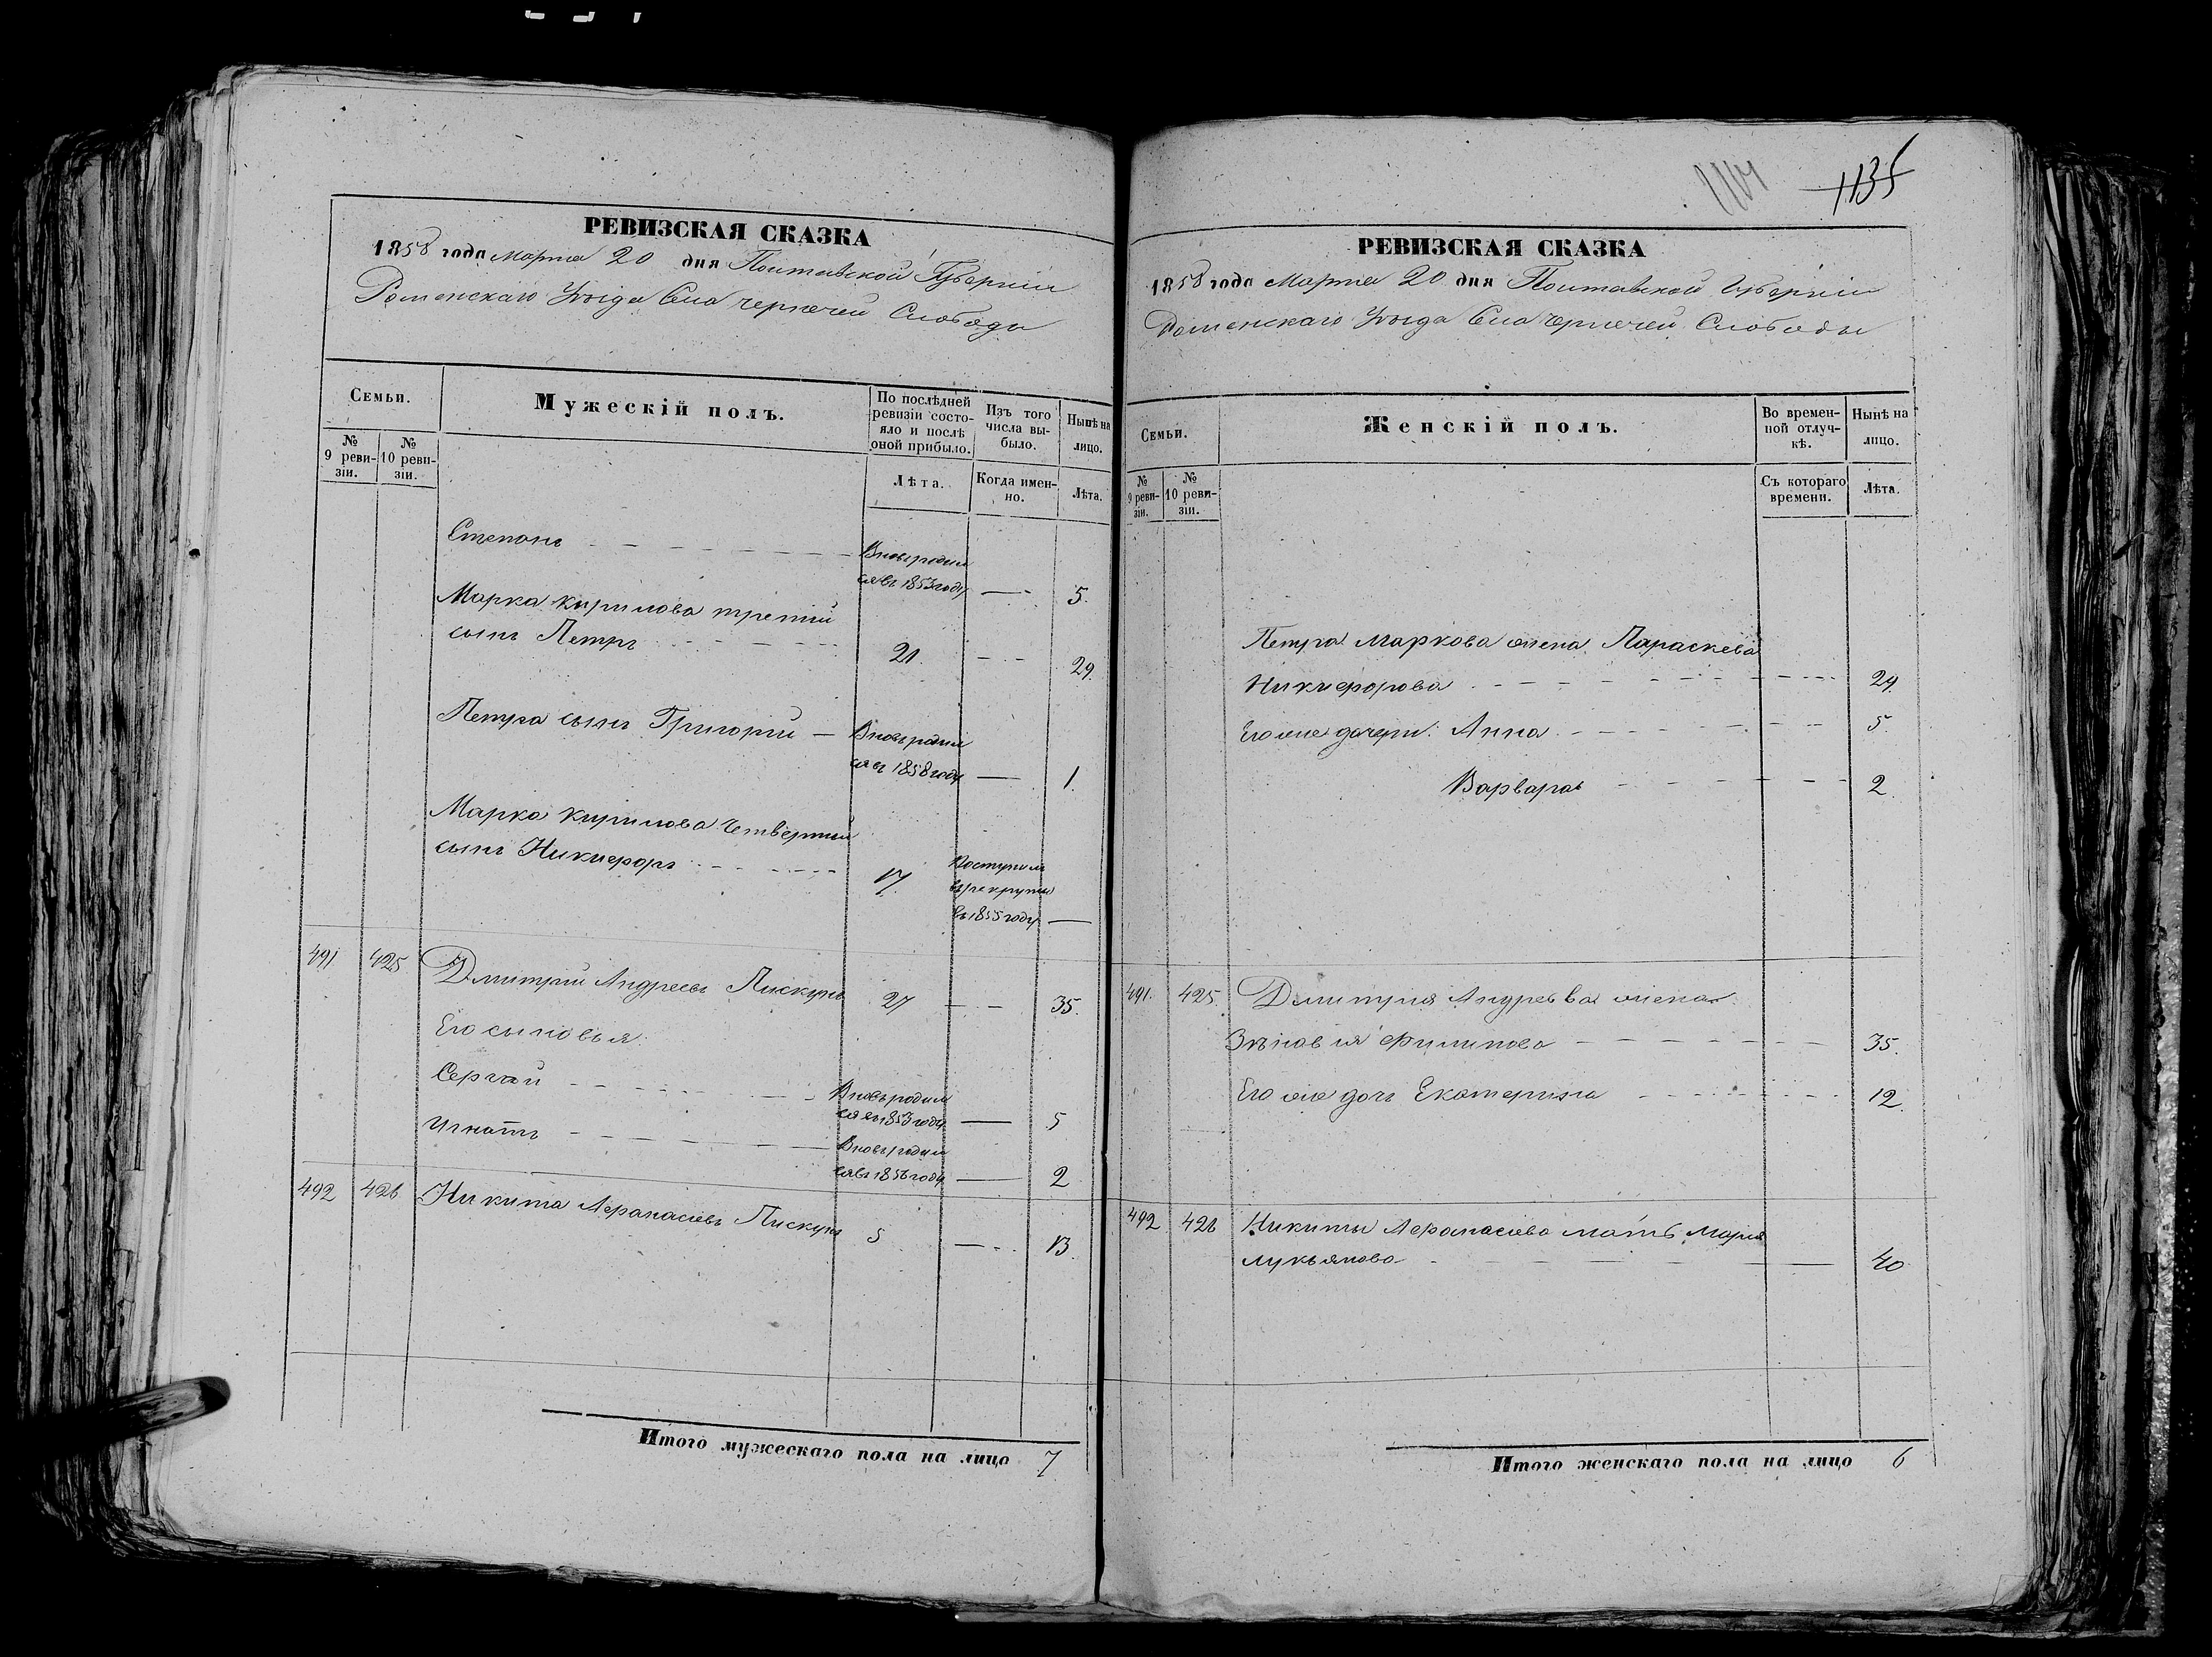 РЕВИЗСКАЯ СКАЗКА
1858 года Марта 20 дня Полтавской Губерніи
Роменскаго Уѣзда Села Чернечей Слободы
Семьи.
№ 9 ревизіи.
№ 10 ревизіи.
Мужескій полъ.
По послѣдней ревизіи состояло и послѣ оной прибыло.
Изъ того числа выбыло.
Нынѣ на лицо.
Лѣта.
Когда именно.
Лѣта.
Степанъ Вновь родил
ся въ 1853 году — 5.
Марка Кирилова третій
сынъ Петръ 21. — 29.
Петра сынъ Григорій — Вновь родил
ся въ 1858 году — 1.
Марка Кирилова четвертый
сынъ Никифоръ 17. Поступилъ
въ рекруты
въ 1855 году —
491 425 Дмитрий Андреевъ Пискунъ 27 — 35.
Его сыновья:
Сергѣй Вновь родил
ся въ 1853 году — 5
Игнатъ Вновь родил
ся въ 1856 году — 2
492 426 Никита Афанасіевъ Пискунъ 5 — 13.
Итого мужескаго пола на лицо 7
1135
РЕВИЗСКАЯ СКАЗКА
1858 года Марта 20 дня Полтавской Губерніи
Роменскаго Уѣзда Села Чернечей Слободы
Семьи.
№ 9 ревизіи.
№ 10 ревизіи.
Женскій полъ.
Во временной отлучкѣ.
Нынѣ на лицо.
Съ котораго времени.
Лѣта.
Петра Маркова жена Параскева
Никифорова 29.
Его же дочери: Анна 5.
Варвара 2.
491. 425. Дмитрия Андреева жена
Зѣновія Филипова 35.
Его же дочь Екатерина 12.
492 426 Никиты Афанасіева мать Марія
Лукьянова 40
Итого женскаго пола на лицо 6